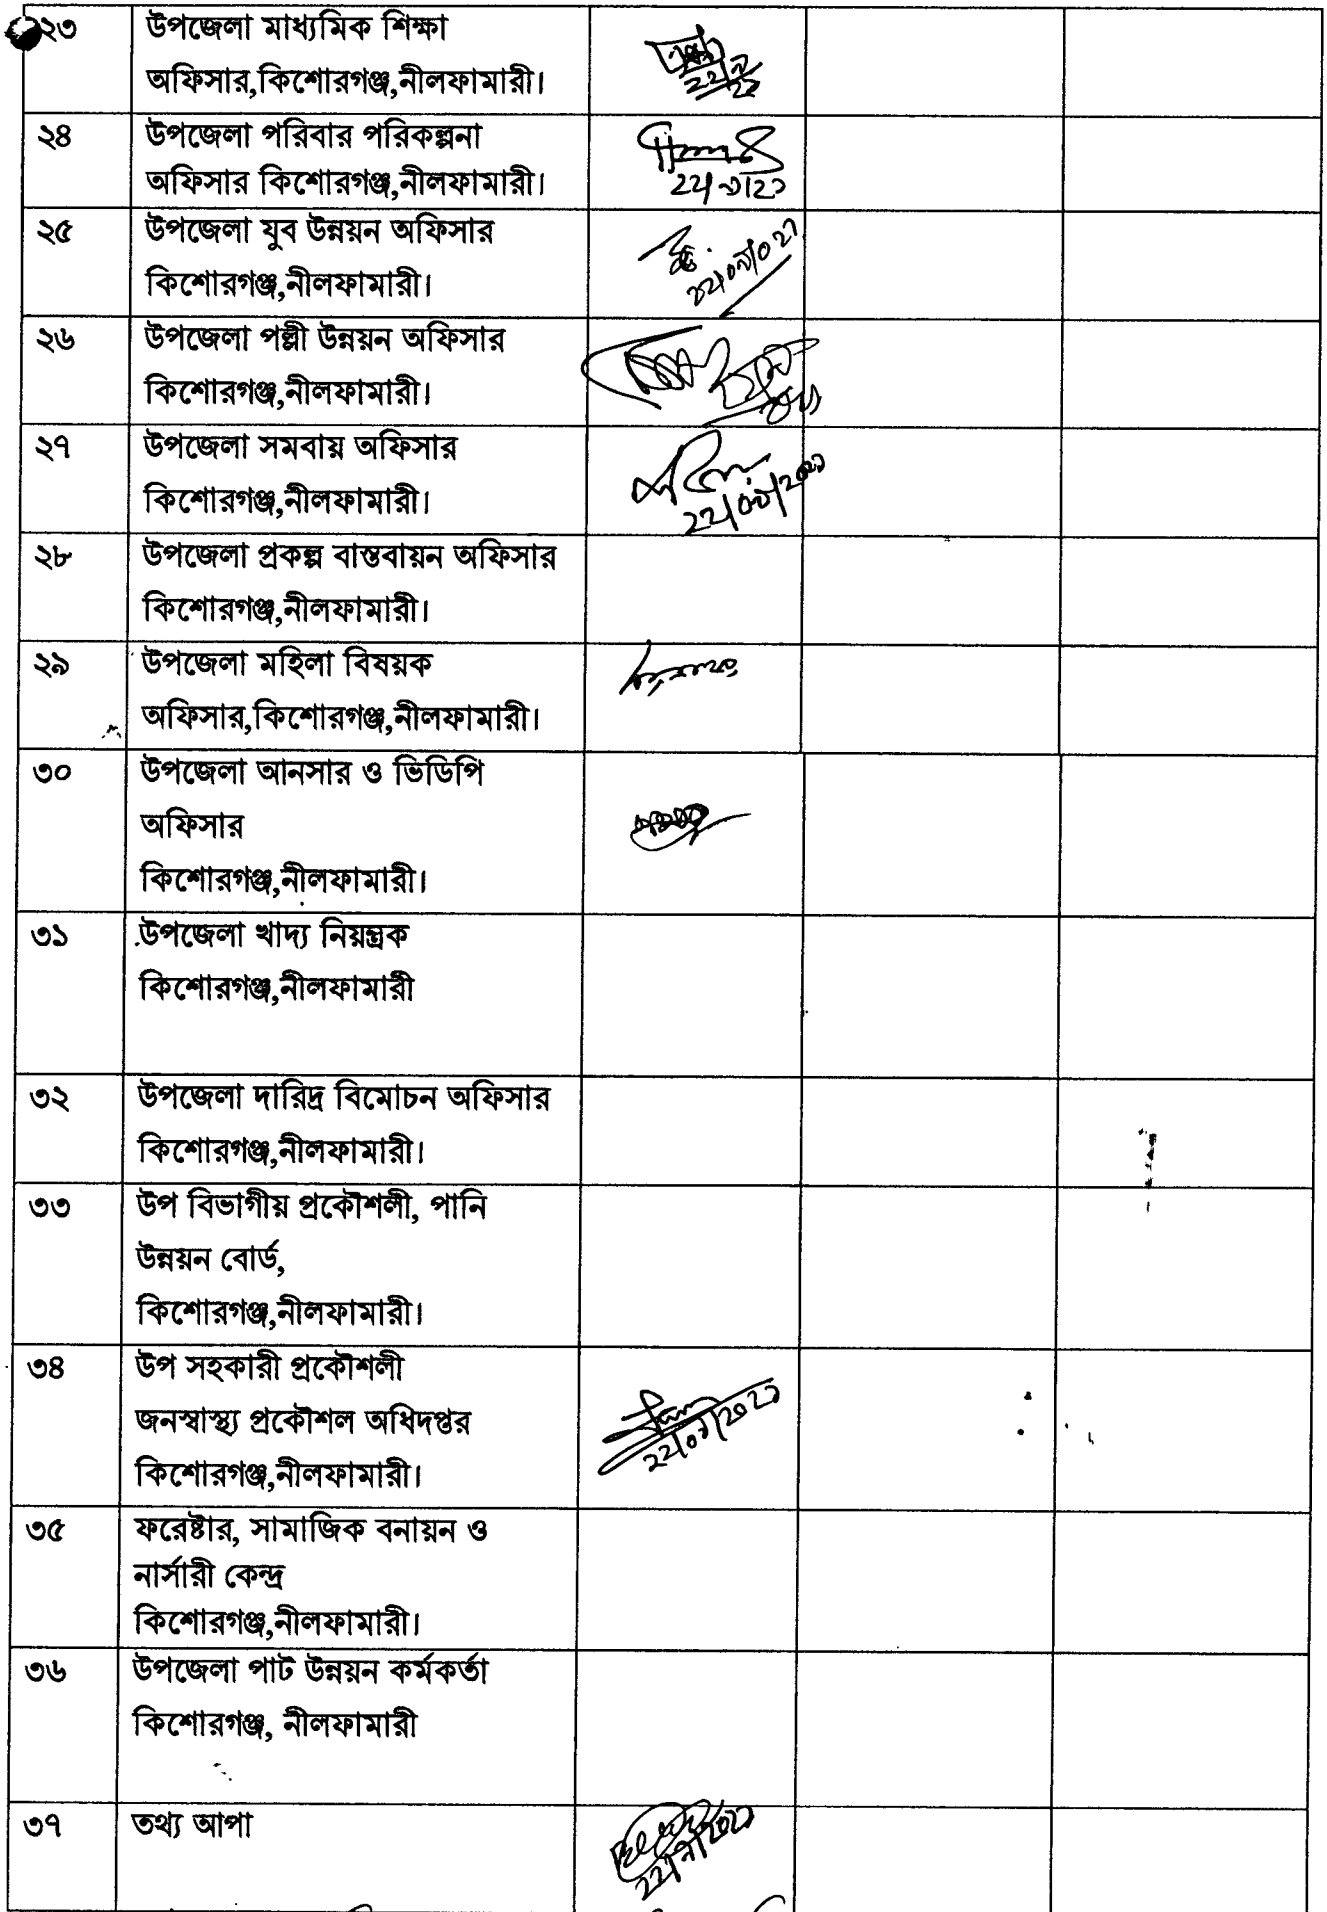 ২৩ উপজেলা মাধ্যমিক শিক্ষা
অফিসার,কিশোরগঞ্জ,নীলফামারী।
২৪ উপজেলা পরিবার পরিকল্পনা
অফিসার কিশোরগঞ্জ,নীলফামারী।
২৫ উপজেলা যুব উন্নয়ন অফিসার
কিশোরগঞ্জ,নীলফামারী।
২৬ উপজেলা পল্লী উন্নয়ন অফিসার
কিশোরগঞ্জ,নীলফামারী।
২৭ উপজেলা সমবায় অফিসার
কিশোরগঞ্জ,নীলফামারী।
২৮ উপজেলা প্রকল্প বাস্তবায়ন অফিসার
কিশোরগঞ্জ,নীলফামারী।
২৯ উপজেলা মহিলা বিষয়ক
অফিসার,কিশোরগঞ্জ,নীলফামারী।
৩০ উপজেলা আনসার ও ভিডিপি
অফিসার
কিশোরগঞ্জ,নীলফামারী।
৩১ উপজেলা খাদ্য নিয়ন্ত্রক
কিশোরগঞ্জ,নীলফামারী
৩২ উপজেলা দারিদ্র বিমোচন অফিসার
কিশোরগঞ্জ,নীলফামারী।
৩৩ উপ বিভাগীয় প্রকৌশলী, পানি
উন্নয়ন বোর্ড,
কিশোরগঞ্জ,নীলফামারী।
৩৪ উপ সহকারী প্রকৌশলী
জনস্বাস্থ্য প্রকৌশল অধিদপ্তর
কিশোরগঞ্জ,নীলফামারী।
৩৫ ফরেষ্টার, সামাজিক বনায়ন ও
নার্সারী কেন্দ্র
কিশোরগঞ্জ,নীলফামারী।
৩৬ উপজেলা পাট উন্নয়ন কর্মকর্তা
কিশোরগঞ্জ, নীলফামারী
৩৭ তথ্য আপা